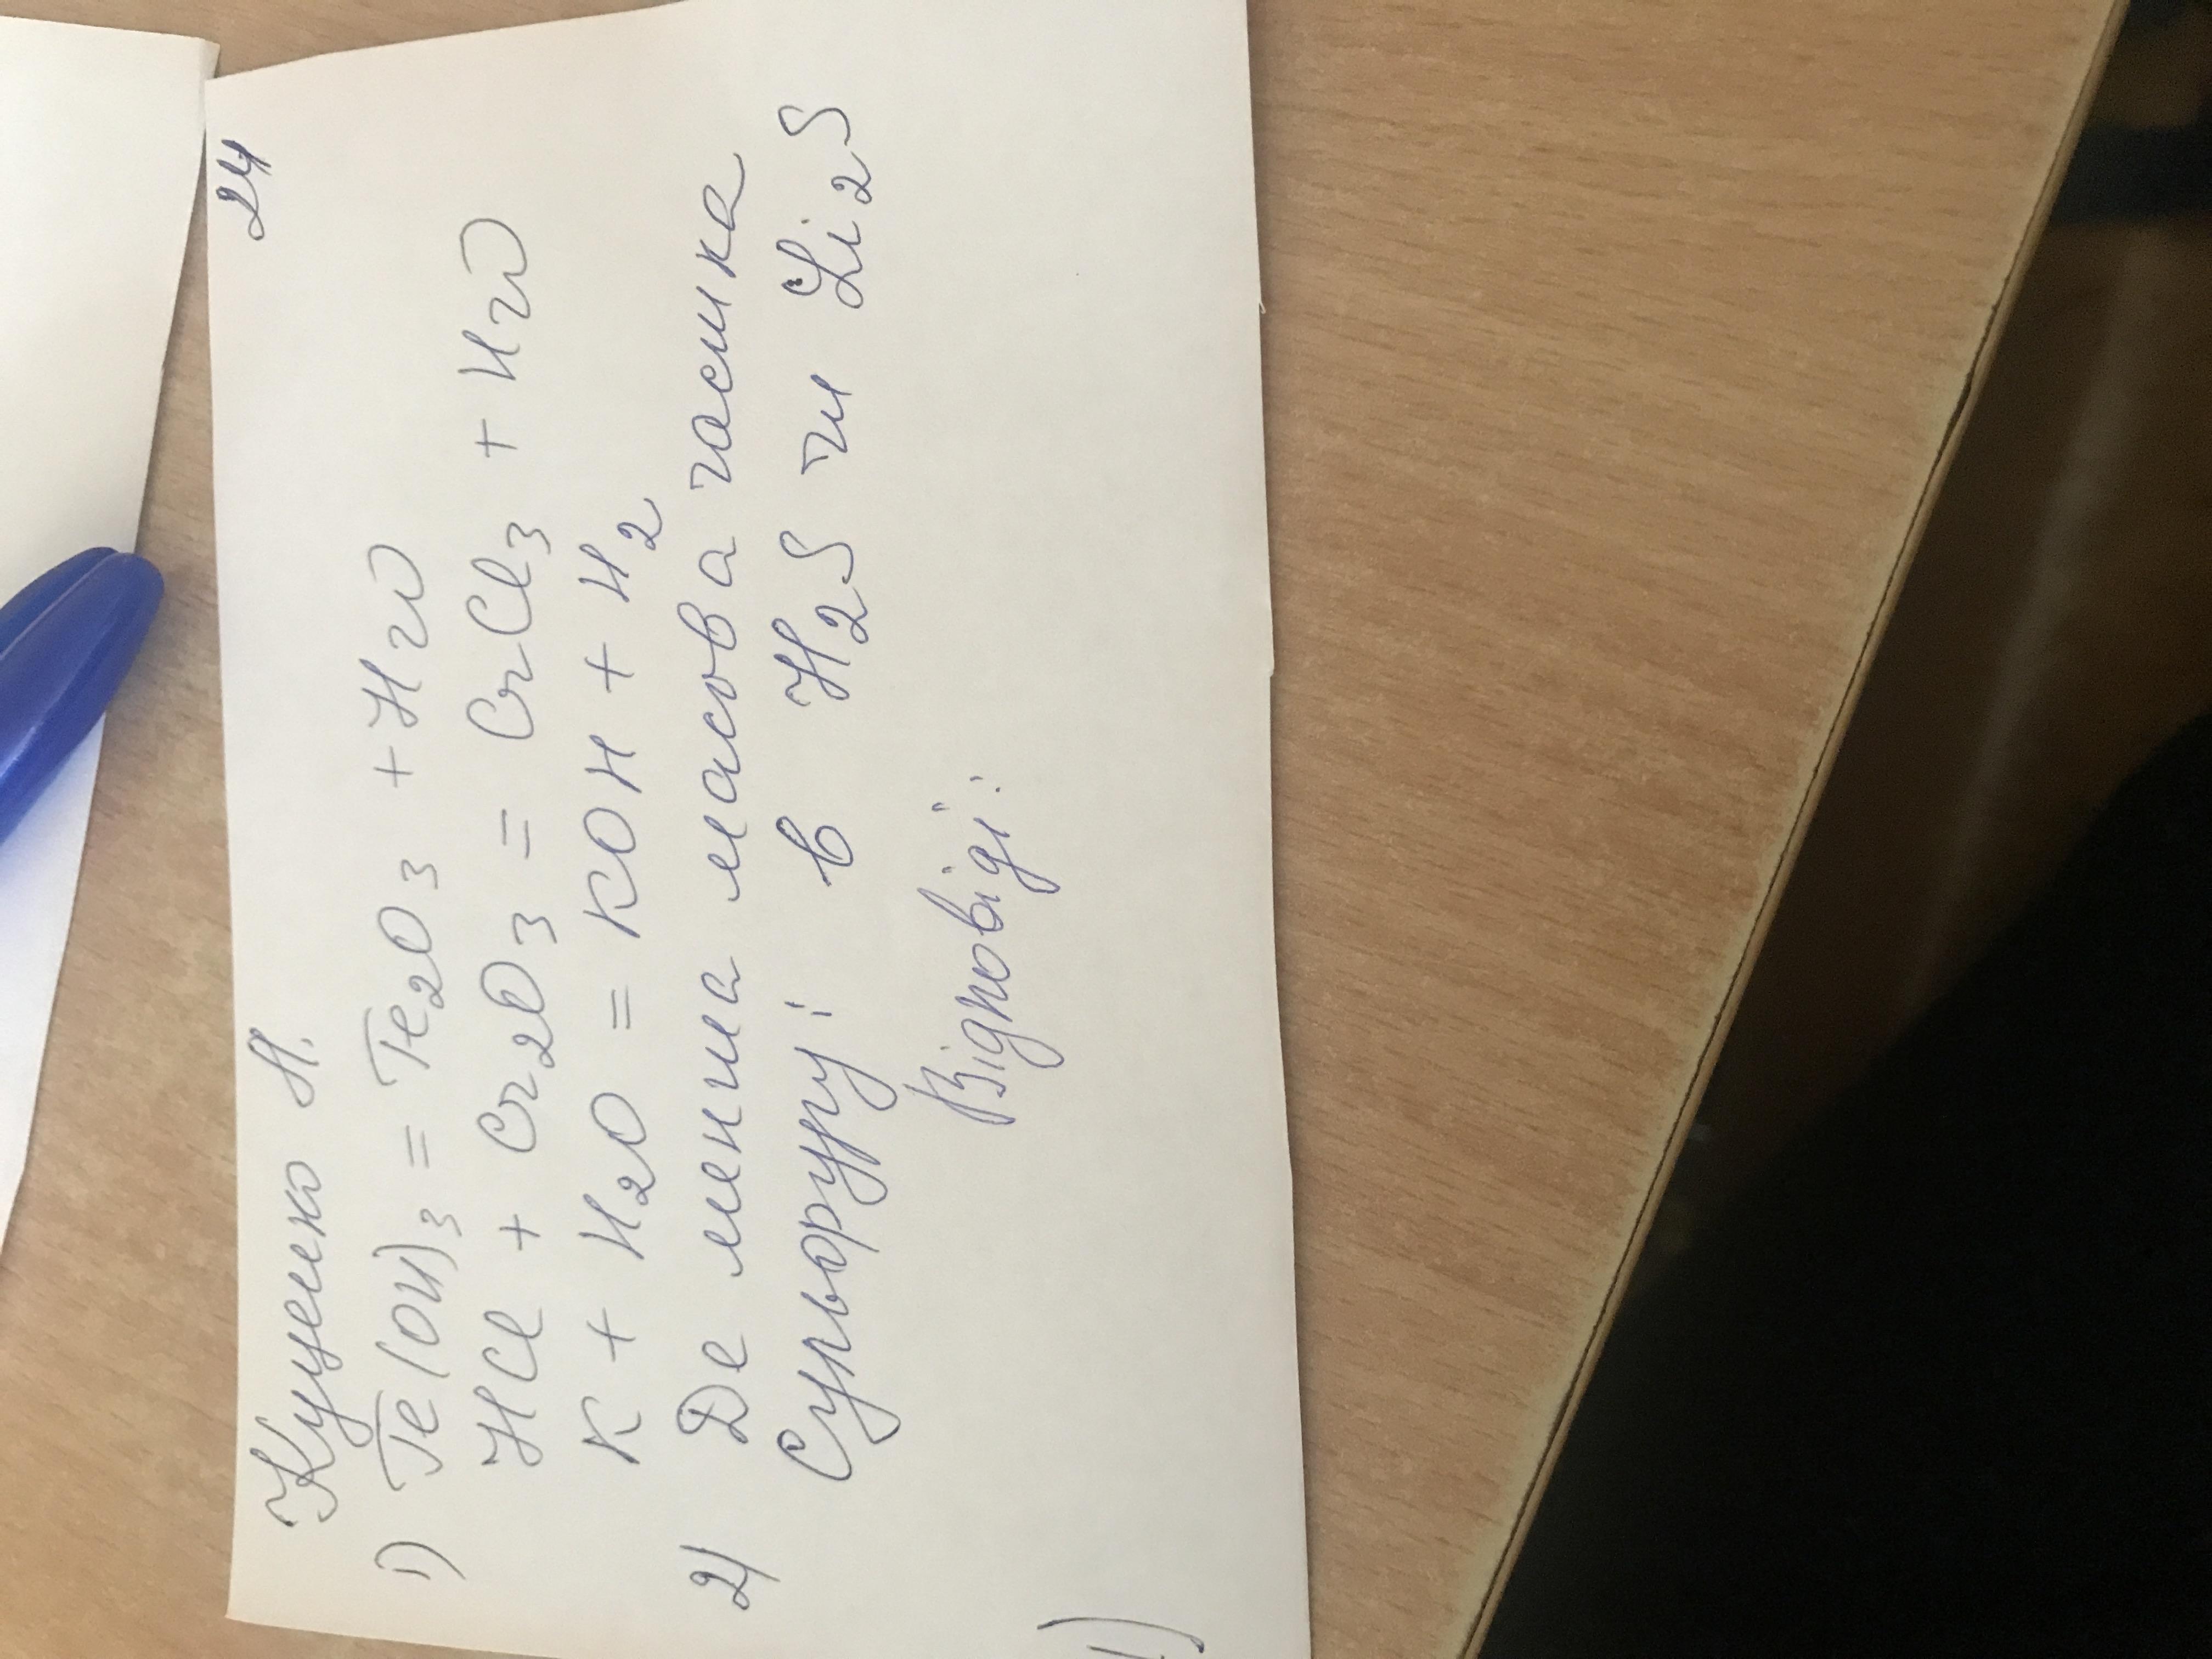 Куценко Н. 24
1) Fe(OH)3 = Fe2O3 + H2O
HCl + Cr2O3 = CrCl3 + H2O
K + H2O = KOH + H2
2) Де менша масова частка
Сульфуру: в H2S чи Li2S
Відповіді:
1)